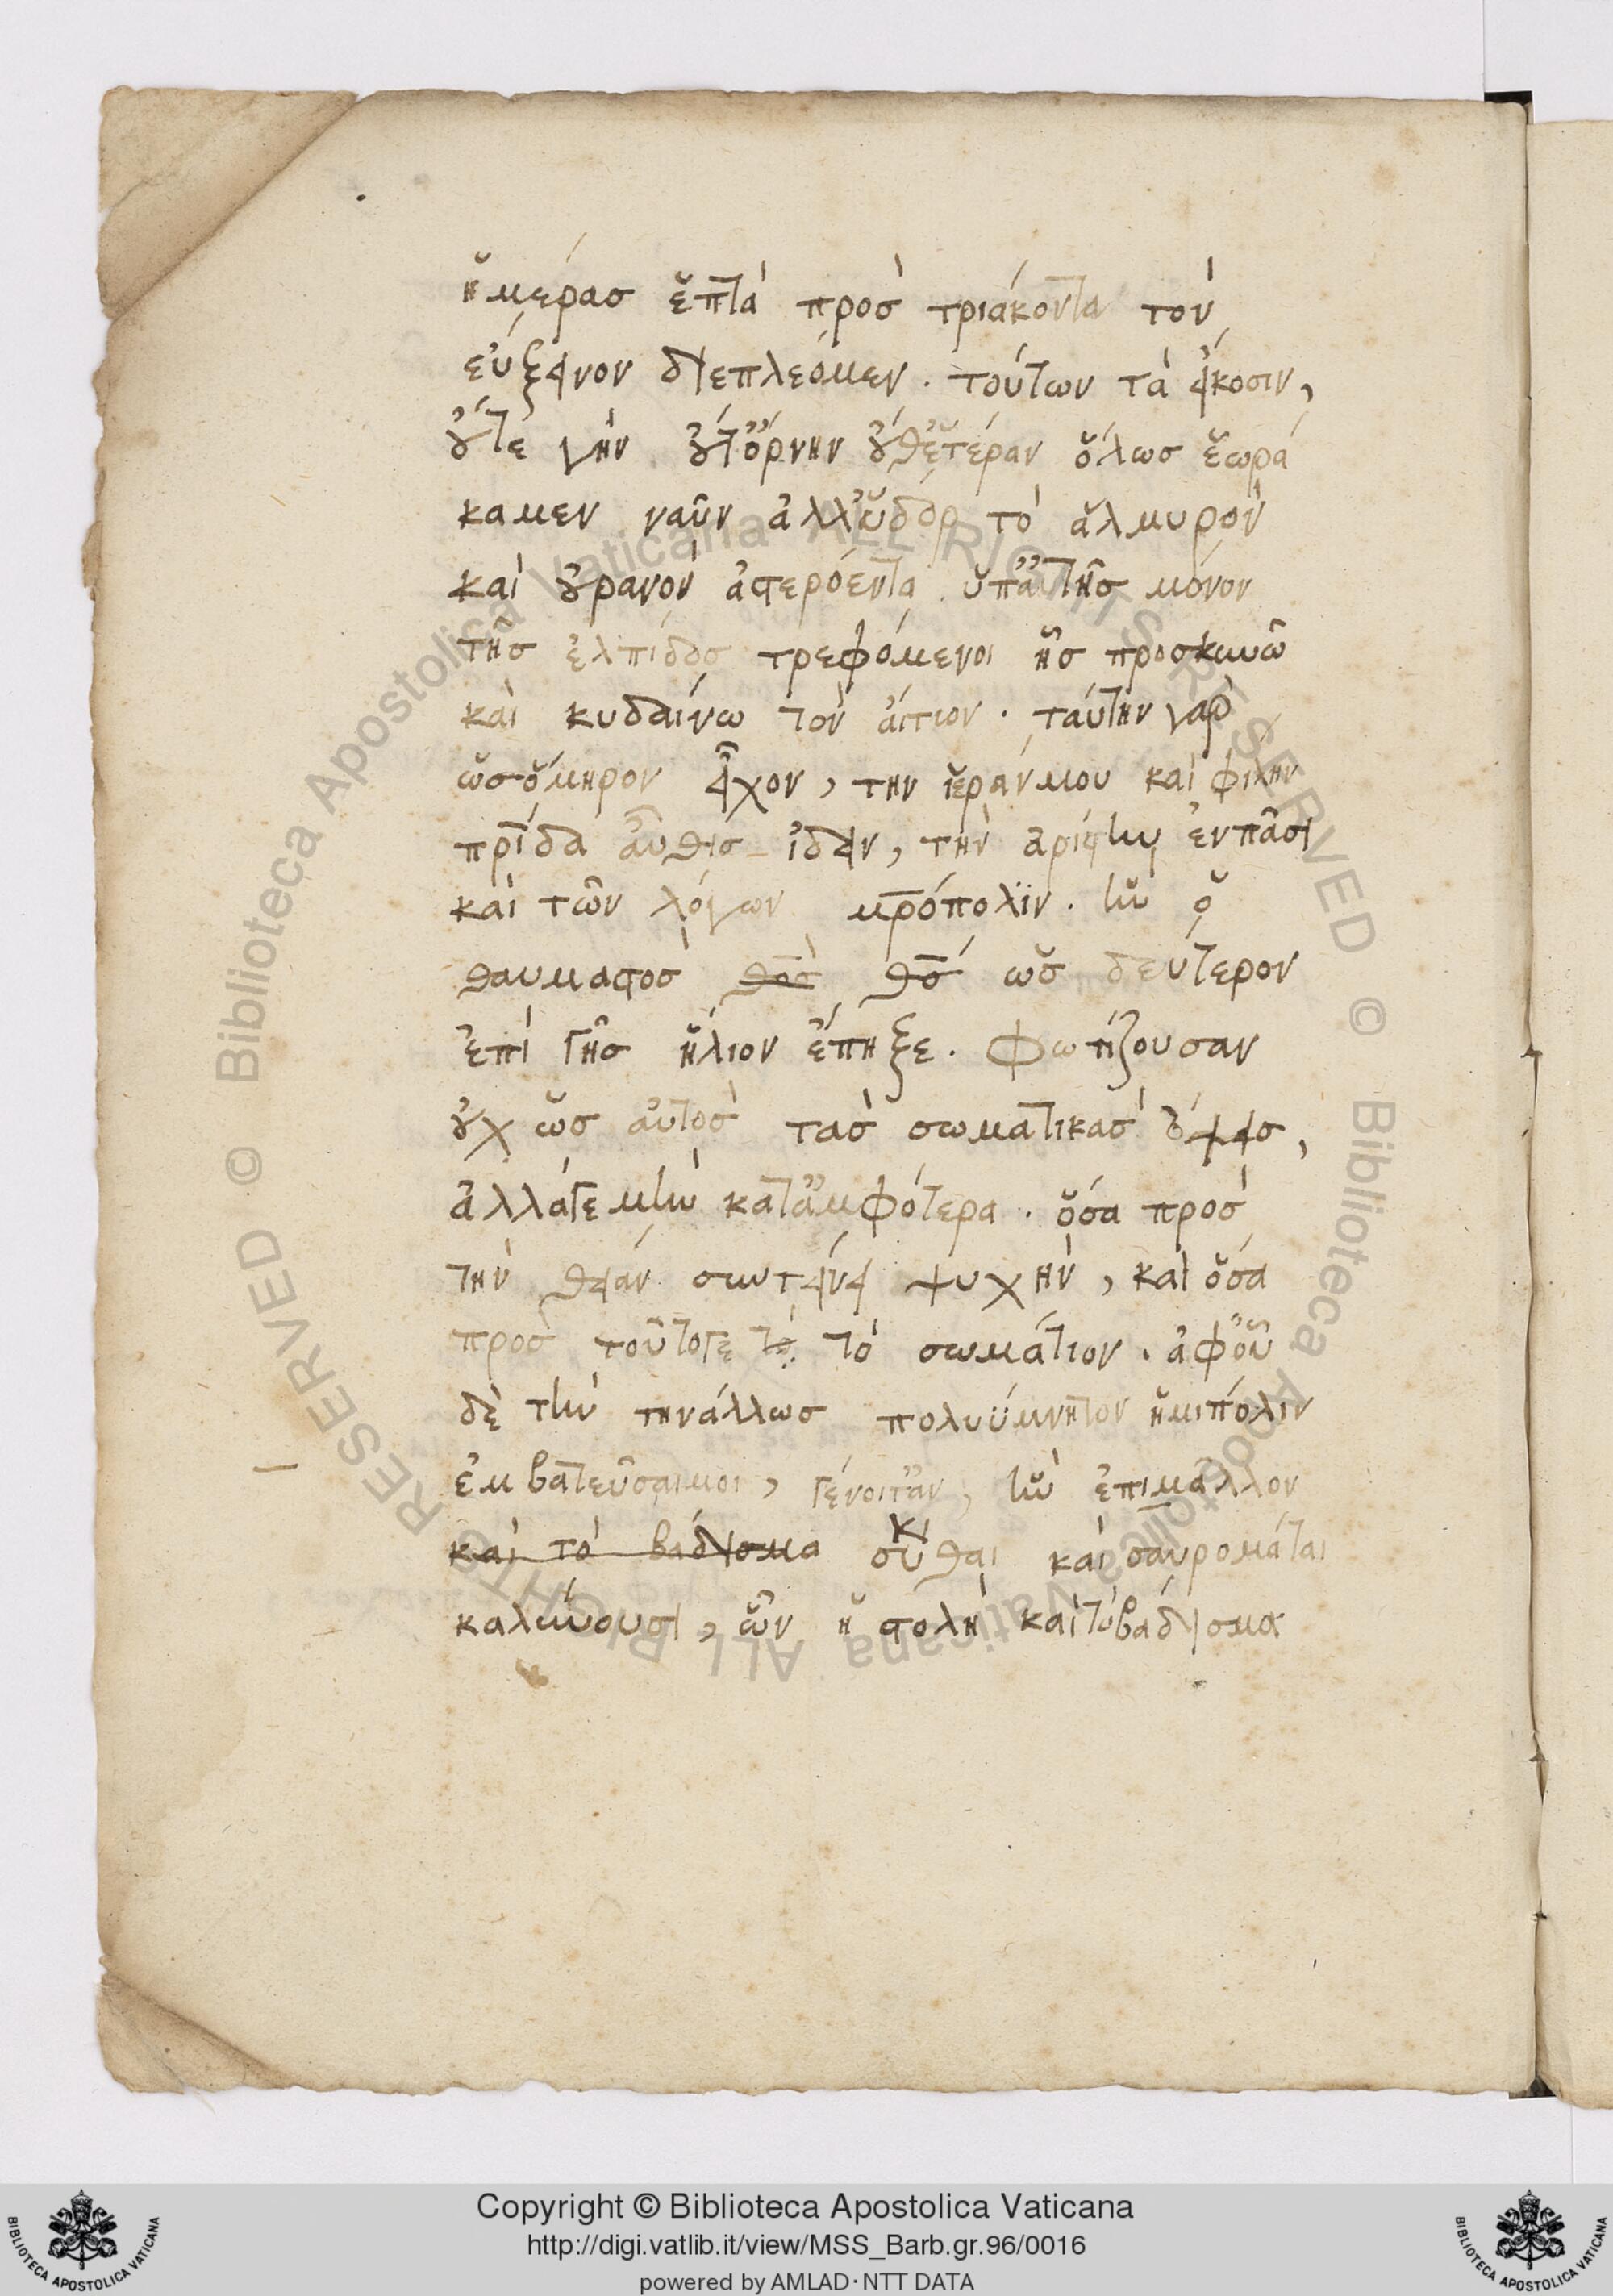 ἡμέρασ ἑπτὰ πρὸσ τριάκοντα τὸν
εὔξεινον διεπλέομεν. τούτων τὰ εἴκοσιν,
οὔτε γῆν οὔτ ὄρνην οὔθ ἑτέραν ὅλωσ ἑωρά
καμεν ναῦν ἀλλ ὕδορ τὸ ἁλμυρὸν
καὶ οὐρανὸν ἀστερόεντα. ὑπ αὐτῆσ μόνον
τῆσ ἐλπίδοσ τρεφόμενοι ἧσ προσκυνῶ
καὶ κυδαίνω τὸν αἴτιον. ταύτην γὰρ
ὡσ ὅμηρον εἶχον, την ἱεράν μου καὶ φίλην
πρῖδα αὖθισ ἰδεῖν, τὴν ἀρίστην ἐν πᾶσι
καὶ τῶν λόγων μρόπολϊν. ἣν ὁ
θαυμαστὸσ θσ θσ ὡσ δεύτερον
ἐπὶ γῆσ ἥλιον ἔπηξε. φωτίζουσαν
οὐχ ὡσ αὐτὸσ τὰσ σωματικὰσ ὄψεισ,
ἀλλά γε μὴν κατ ἀμφότερα. ὅσα πρὸσ
τὴν θείαν συντείνει ψυχὴν, καὶ ὅσα
πρὸσ τοῦτο γε τὸ τὸ σωμάτιον. ἀφ οὗ
δὲ τὴν τηνάλλωσ πολυύμνητον ἡμιπόλιν
ἐμβατεῦσαι μοι, γένοιτ ἂν, ἣν ἐπιμᾶλλον
καὶ τὸ βάδισμα σκύθαι καὶ σαυρομάται
καλύνουσι, ὧν ἡ στολὴ καὶ τὸ βάδισμα
Copyright © Biblioteca Apostolica Vaticana
http://digi.vatlib.it/view/MSS_Barb.gr.96/0016
powered by AMLAD · NTT DATA